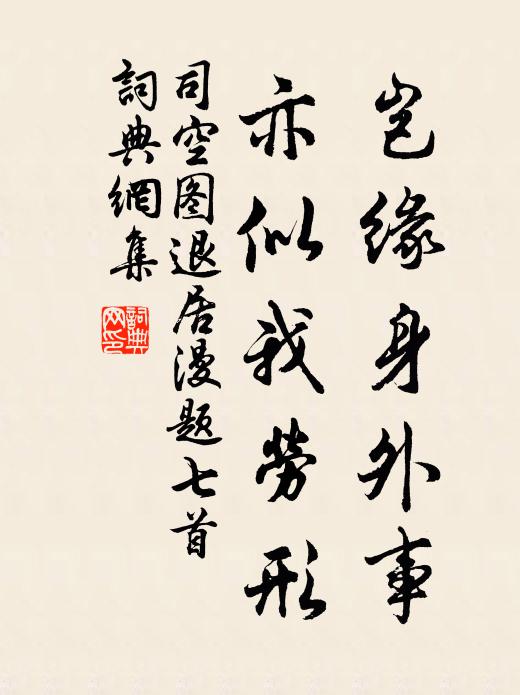 岂缘身外事
亦似我劳形
司空图退居漫题七首
詞典網集
詞典网印